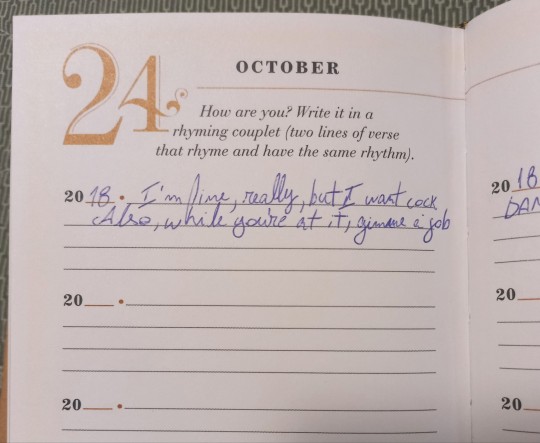 24
OCTOBER
How are you? Write it in a
rhyming couplet (two lines of verse
that rhyme and have the same rhythm).
2018 • I'm fine, really, but I want cock
Also, while you're at it, gimme a job
20 •
20 •
2018
DAN
20
20